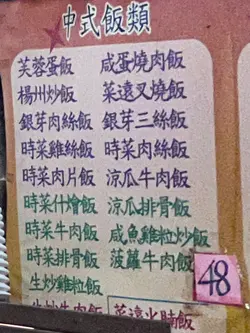 中式飯類
芙蓉蛋飯 咸蛋燒肉飯
楊州炒飯 菜遠叉燒飯
銀芽肉絲飯 銀芽三絲飯
時菜雞絲飯 時菜肉絲飯
時菜肉片飯 涼瓜牛肉飯
時菜什燴飯 涼瓜排骨飯
時菜牛肉飯 咸魚雞粒炒飯
時菜排骨飯 菠蘿牛肉飯
生炒雞粒飯
48
生炒牛肉飯 菜遠火腩飯